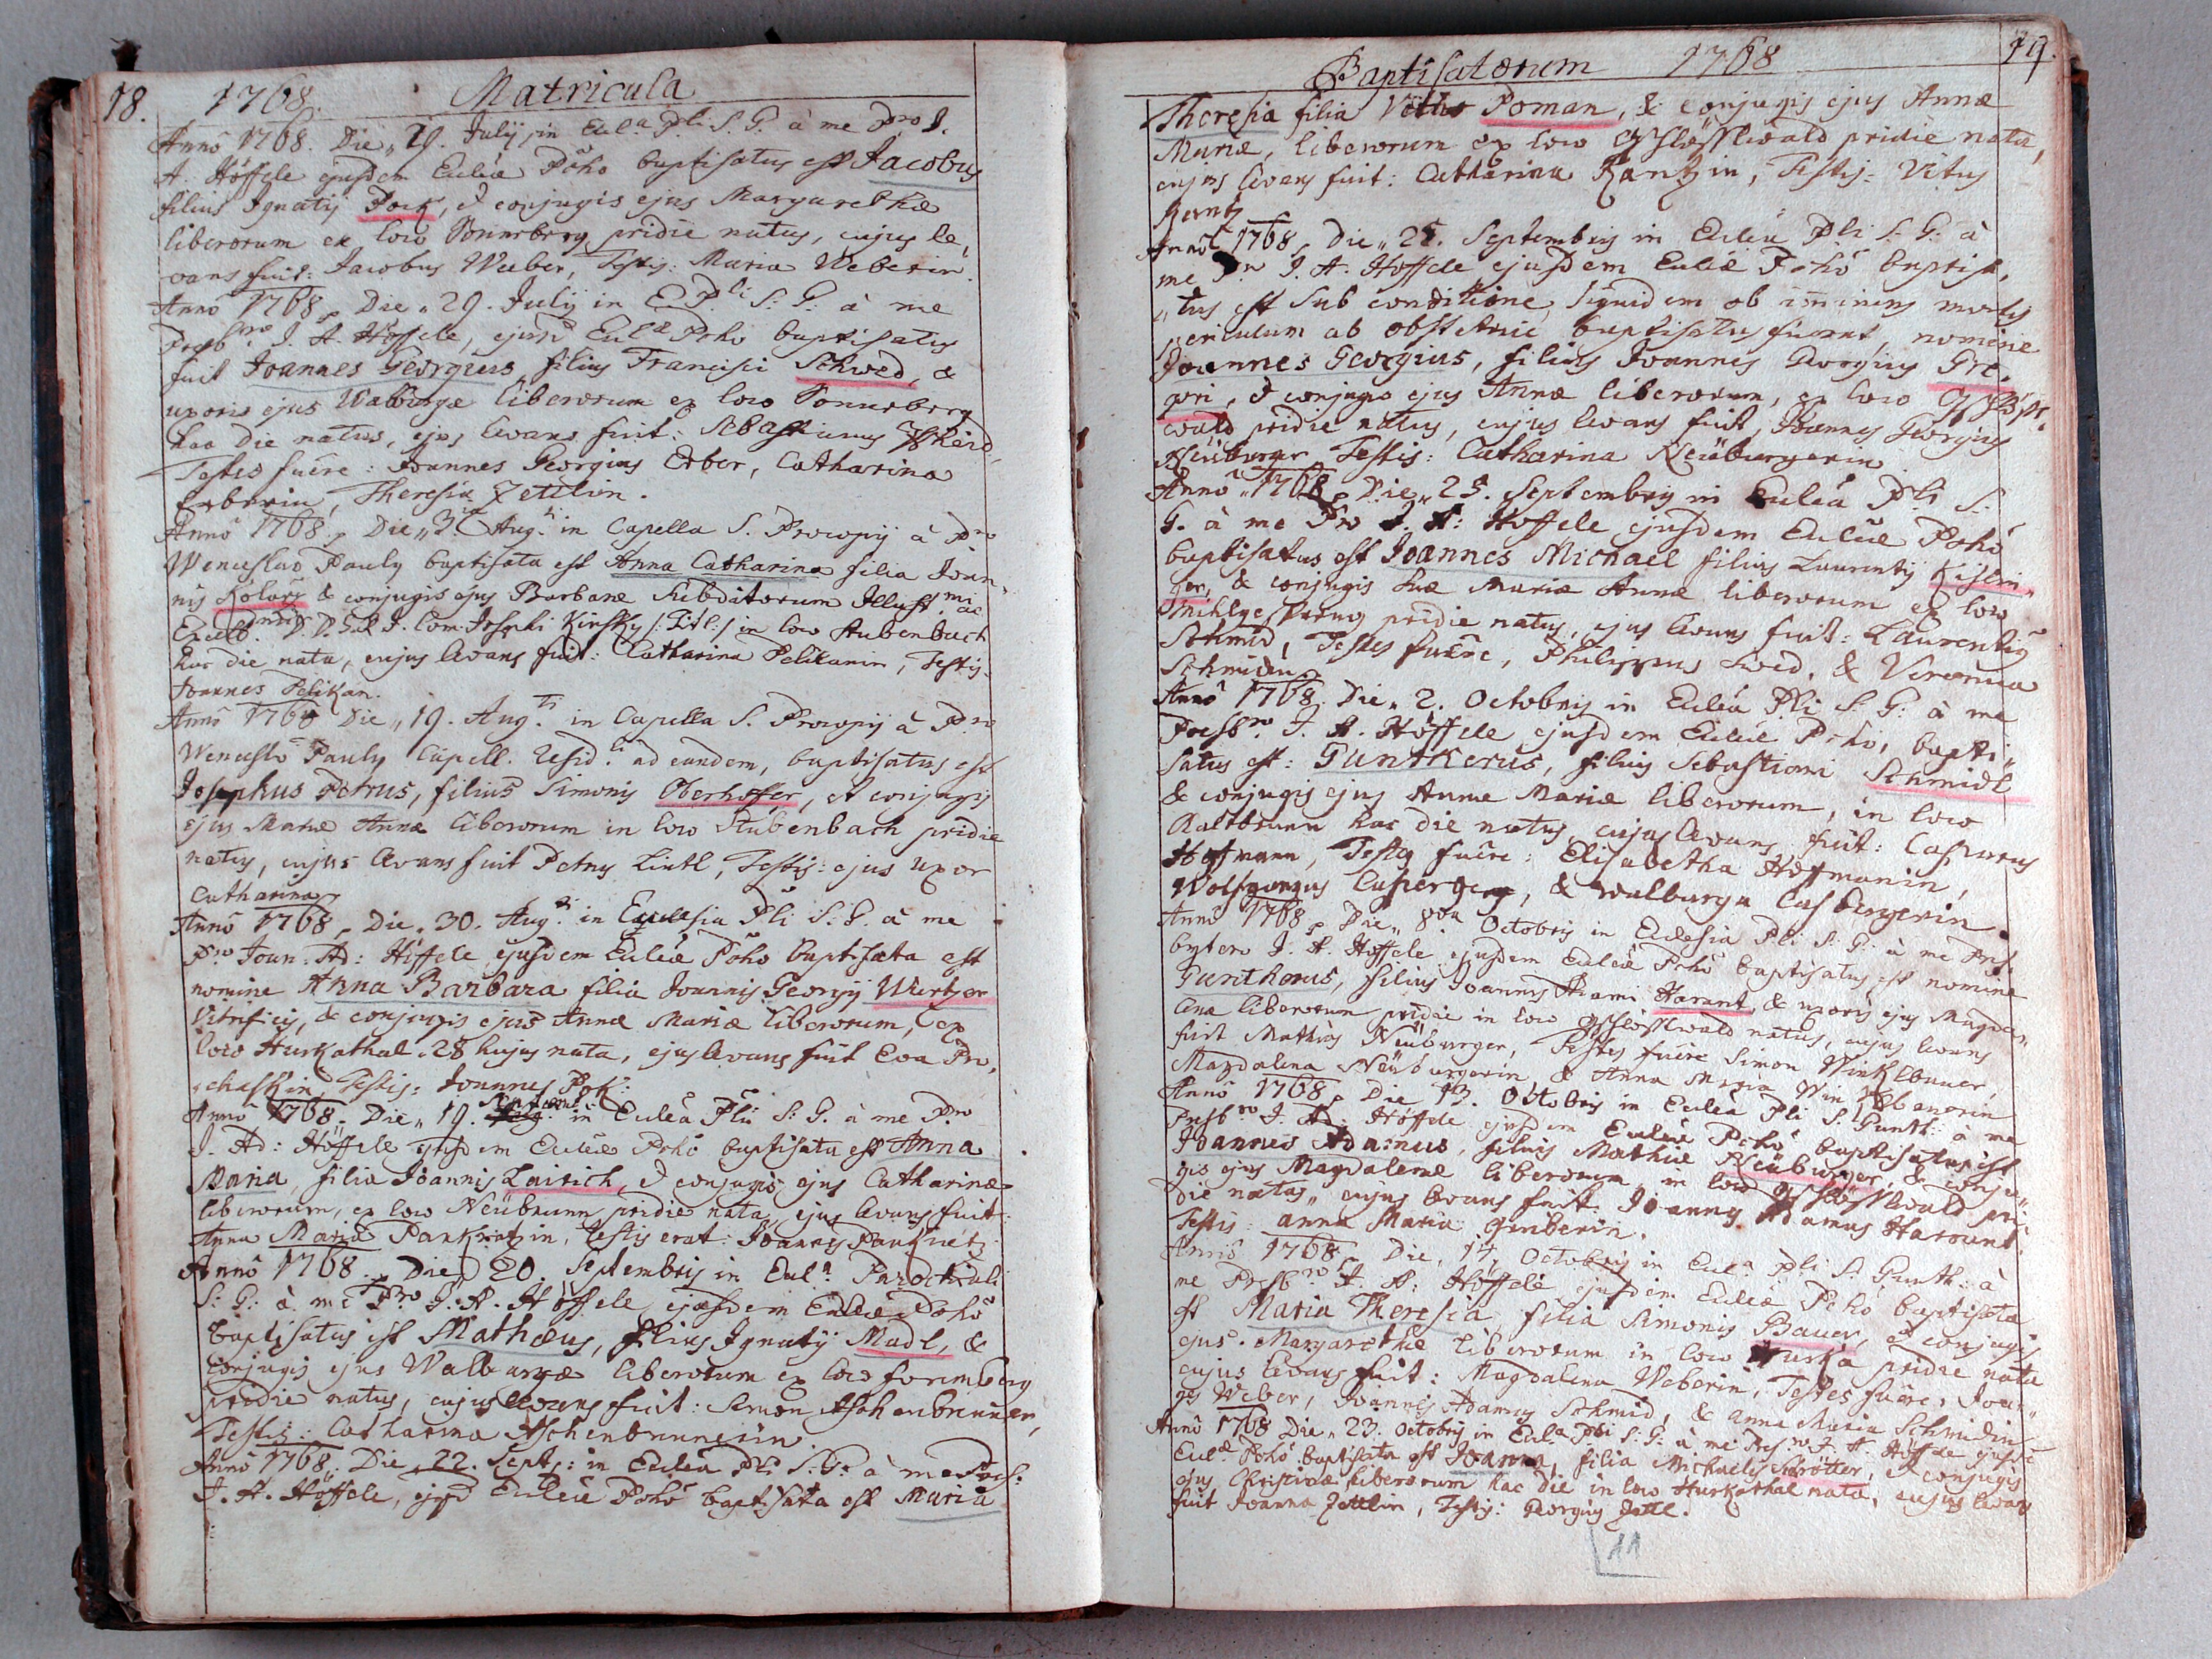 18. 1768. Matricula
Anno 1768. Die 29. Julij in Eul.a Pli. S. G. à me Pro J.
A. Höffele ejusdem Euliæ Pcho baptisatus est Jacobus
filius Ignatij Pock, & conjugis ejus Margarethæ
liberorum ex loco pridie natus, cujus le,
vans fuit: Jacobus Weeber, Testis: Maria Weberin.
Anno 1768. Die 29. Julij in E. Pli S: G. à me
Presb.ro J. A. Höffele, ejusd Eulæ Pcho baptisatus
fuit Joannes Georgius, filius Francisci Schwed, &
uxoris ejus Walburgæ liberorum ex loco
hac die natus, ejus levans fuit: Sebastianus
Testes fuêre: Joannes Georgius Erber, Catharina
Erberin, Theresia Zettlin.
Anno 1768. Die 3. Aug.ti in Capella S. Procopij à Pro
Wenceslao Pauly baptisata est Anna Catharina filia Joan
nis Kolarz & conjugis ejus Barbaræ Subditorum Illust.mi ac
Excell. D. D. S. R. I. Com: Josephi Kinsky /: Titl: / in loco Stubenbach
hac die nata, cujus levans fuit: Catharina Pelikanin, Testis
Joannes Pelikan.
Anno 1768 Die 19. Aug.ti in Capella S. Procopij à Pro
Wenceslao Pauly Capell. Resid.ti ad eundem, baptisatus est
Josephus Petrus, filius Simonis Oberhoffer, et conjugis
ejus Mariæ Annæ liberorum in loco Stubenbach pridie
natus, cujus levans fuit Petrus Lintl, Testis: ejus uxor
Catharina
Anno 1768. Die 30. Aug.ti in Ecclesia Pli S: G. à me
Pro Joan. Ad: Höffele ejusdem Euliæ Pcho baptisata est
nomine Anna Barbara filia Joannis Georgij Wirtzer
Vitrificis, & conjugis ejus Annæ Mariæ liberorum, ex
loco Hurkathal 28 hujus nata, ejus levans fuit Eva Pro,
chaskin Testis: Joannes
Anno 1768. Die 19. Septemb: in Euleâ Pli S: G. à me Pro
J. Ad: Höffele ejusdem Euliæ Pcho baptisata est Anna
Maria, filia Joannis Lairich, & conjugis ejus Catharinæ
liberorum, ex loco Neübrunn pridie nata, ejus levans fuit:
Anna Maria Pankratzin, Testis erat: Joannes Pankratz.
Anno 1768. Die 20 Septembris in Eul.a Parochiali
S: G: à me Pro J. A. Höffele ejusdem Euleæ Pcho
baptisatus est Mathæus, filius Ignatij Madl, &
conjugis ejus Walburgæ liberorum ex loco
pridie natus, cujus levans fuit: Simon Aschenbrenner,
Testis: Catharina Aschenbrennerin.
Anno 1768. Die 22. Sept: in Euleâ Pli S: G: à me Pres:
J. A. Höffele, ejusd Euleæ Pcho baptisata est Maria
Baptisatorum 1768 19.
Theresia filia Poman, & conjugis ejus Annæ
Mariæ, liberorum ex loco Gschlösslwald pridie nata,
cujus levans fuit: Catharina Kantzin, Testis: Vitus
Anno 1768. Die 25. Septembris in Euleâ Pli S: G: à
me P.ro J. A. Höffele ejusdem Euliæ Pcho baptisa,
tus est sub conditione, siquidem ob iminens mortis
periculum ab obstetrice baptisatus fuerat, nomine
Joannes Georgius, filius Joannis Georgius Gre,
gori, & conjugis ejus Annæ liberorum, ex loco Gschlösl,
wald pridie natus, cujus levans fuit, Joannes Georgius
Neüburger Testis: Catharina Neüburgerin
Anno 1768. Die 25. Septembris in Euleâ Pli S:
G. à me Pro J. A: Höffele ejusdem Euleæ Pcho
baptisatus est Joannes Michael filius Laurentij Kislin,
ger, & conjugis suæ Mariæ Annæ liberorum ex loco
pridie natus, ejus levans fuit: Laurentius
Schmid, Testes fuêre, Philippus Swed, & Veronica
Schmidin
Anno 1768. Die 2. Octobris in Euleâ Pli S: G: à me
Presb.ro J. A. Höffele ejusdem Euleæ Pcho, bapti,
satus est: Guntherus, filius Sebastiani Schmidl
& conjugis ejus Annæ Mariæ liberorum, in loco
Kaltbrunn hac die natus, cujus levans fuit: Casparus
Hoffmann, Testes fuêre: Elisabetha Hoffmanin,
Wolfgangus Casperger, & Walburga Casbergerin.
Anno 1768. Die 8va Octobris in Ecclesia Pli S: G: à me Pres,
bytero J. A. Höffele ejusdem Euleæ Pcho baptisatus est nomine
Guntherus, filius Joannis Harant, & uxoris ejus Magda,
lenæ liberorum pridie in loco Gschlösslwald natus, cujus levans
fuit Mathias Neüburger, Testes fuêre Simon Winklbauer,
Magdalena Neüburgerin & Anna Maria Winklbauerin
Anno 1768. Die 13. Octobris in Euleâ Pli S: Gunth: à me
Presb.ro J. Ad. Höffele ejusdem Euleæ Pcho baptisatus est
Joannes Adamus, filius Mathiæ Neüburger, & conju,
gis ejus Magdalenæ liberorum in loco Gschlösslwald pri,
die natus, cujus levans fuit. Joannes Adamus Harount,
Testis: Anna Maria
Anno 1768. Die, 14. Octobris in Eul.a Pli S: Gunth: à
me Presb.ro J. A: Höffele ejusdem Euleæ Pcho baptisata
est Maria Theresia, filia Simonis Bauer, & conjugis
ejus Margarethæ liberorum in loco Hurka pridie nata
cujus levans fuit: Magdalena Weberin, Testes fuêre, Joan,
es Weber, Joannes Adamus Schmid, & Anna Maria Schmidin
Anno 1768 Die 23. Octobris in Eul.a Pli S: G: à me Pres.ro J. A. Höffele ejusdē
Eulæ Pcho baptisata est Joanna, filia Michaelis Schrötter, & conjugis
ejus Christinæ liberorum hac die in loco Hurkathal nata, cujus levans
fuit Joanna Zettlin, Testis: Georgius Zettl.
11